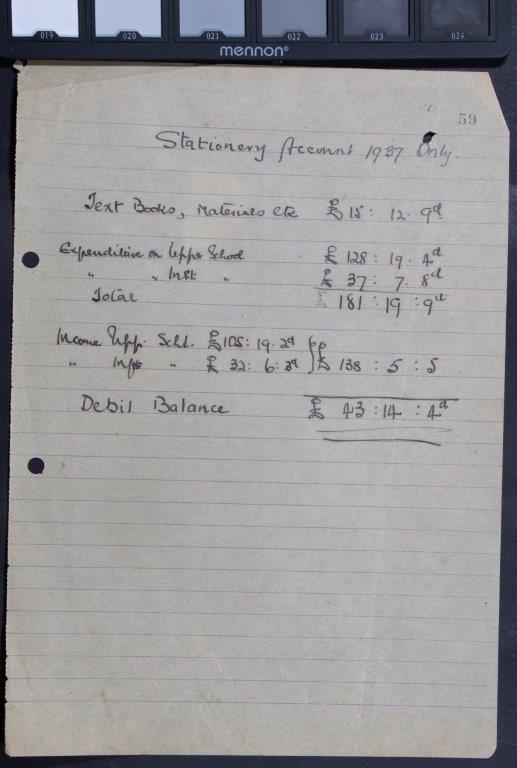 019 020 021 022 023 024
mennon®
59
Stationery Account 1937 Only.
Text Books, Materials etc £ 15 : 12 . 9d
Expenditure on Upper School £ 128 : 19 . 4d
" " Inft. " £ 37 : 7. 8d
Total £ 181 : 19 : 9d
Income Upp. Schl. £105 : 19 . 2d
" Inft " £ 32 : 6 : 3d £ 138 : 5 : 5
Debit Balance £ 43 : 14 : 4d